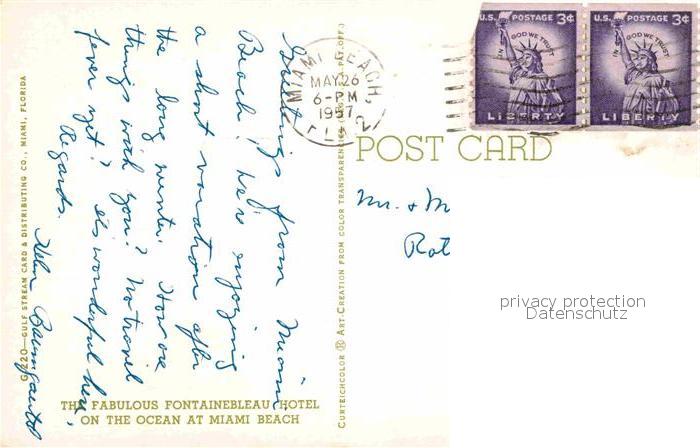 Greetings from Miami
Beach! We're enjoying
a short vacation after
the long winter. How are
things with you? No travel
fever yet? It's wonderful here.
Regards.
Helen
G-220—GULF STREAM CARD & DISTRIBUTING CO., MIAMI, FLORIDA
THE FABULOUS FONTAINEBLEAU HOTEL
ON THE OCEAN AT MIAMI BEACH
CURTEICHCOLOR ® ART-CREATION FROM COLOR TRANSPARENCY
MIAMI BEACH,
MAY 26
6-PM
1957
U.S. POSTAGE 3¢
IN GOD WE TRUST
LIBERTY
U.S. POSTAGE 3¢
IN GOD WE TRUST
LIBERTY
POST CARD
Mr. + M
Rot
privacy protection
Datenschutz